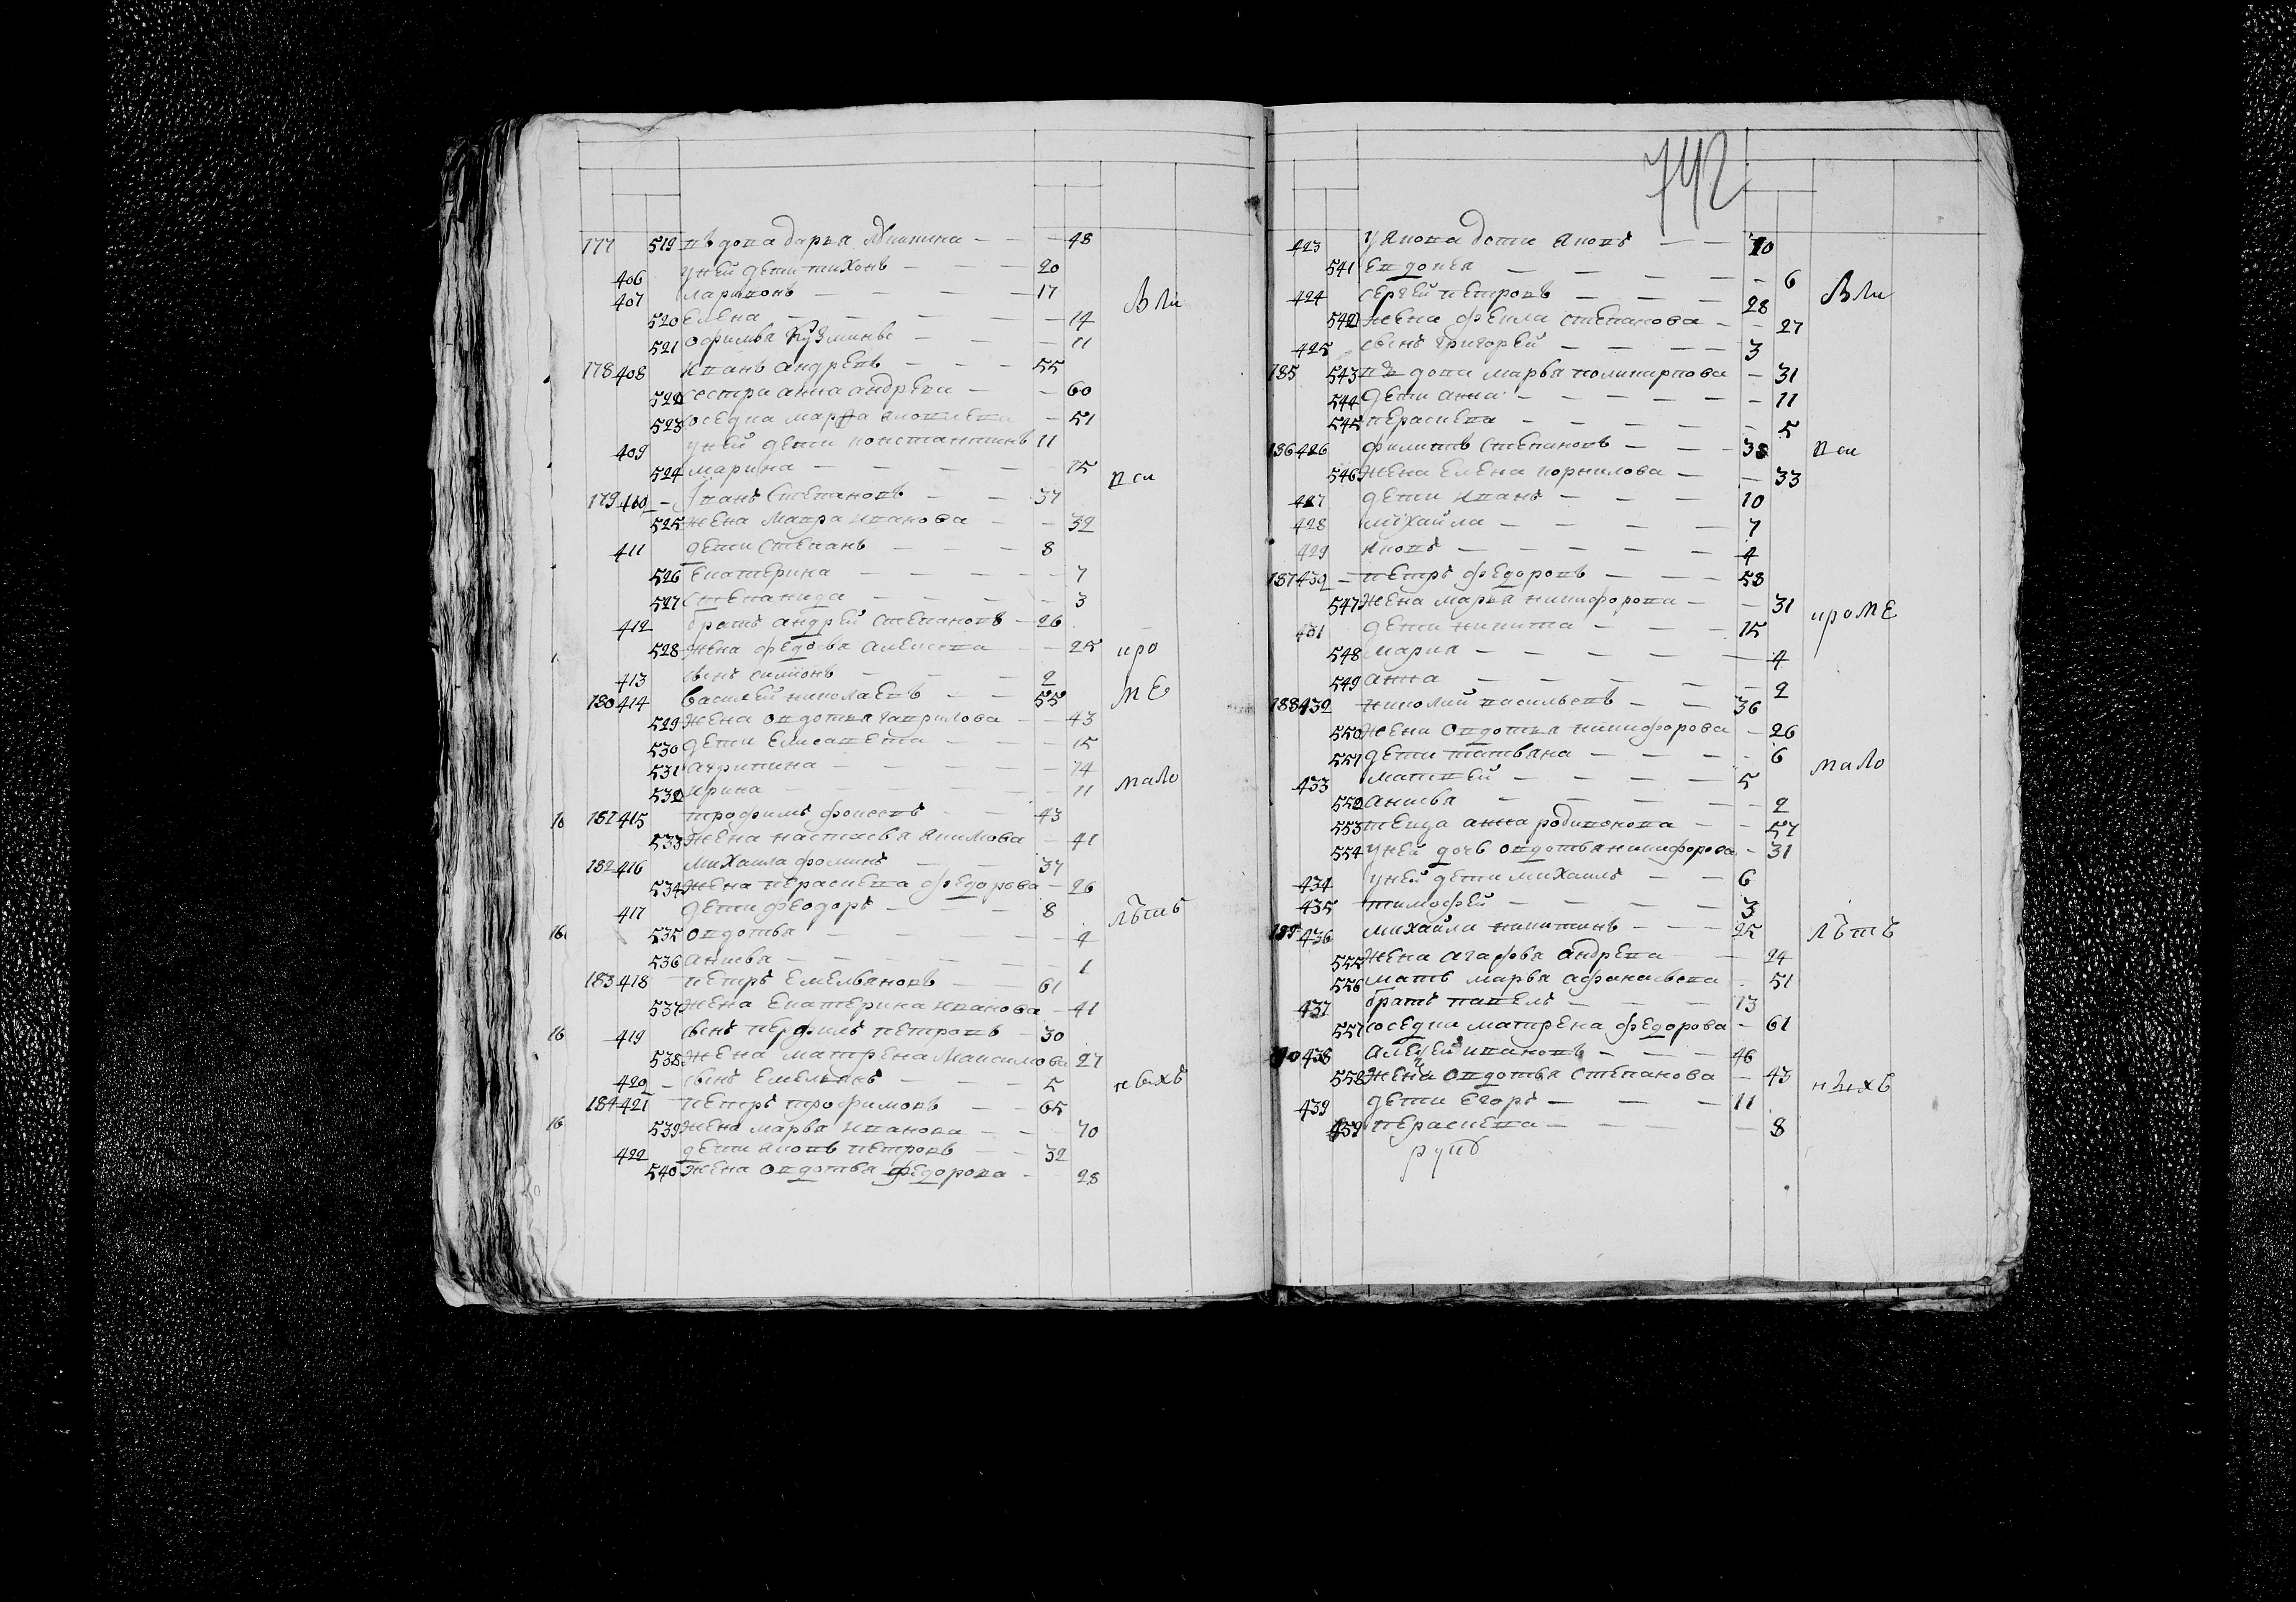 742
177 519 вдова дарья никитина — 48
406 у ней дети тихонъ — 20
407 ларионъ — 17
520 Елена — 14
521 офимья Кузминъ — 11
178 408 иванъ андреевъ — 55
522 сестра анна андреева — 60
523 соседка марфа — 51
409 у ней дети константинъ 11
524 марина — 15
179 410 — Иванъ Степановъ — 37
525 жена Мавра иванова — 32
411 дети Степанъ — 8
526 Екатерина — 7
527 Степанида — 3
412 братъ андрей степановъ — 26
528 жена федосья алексеева — 25
413 сынъ симионъ — 2
180 414 василей николаевъ — 55
529 жена овдотья гаврилова — 43
530 дети Елисавета — 15
531 агрипина — 14
532 ирина — 11
181 415 трофимъ — 43
533 жена настасья якимова — 41
182 416 михаила фоминъ — 37
534 жена параскева федорова — 26
417 дети феодоръ — 8
535 овдотья — 4
536 анисья — 1
183 418 петръ Емельяновъ — 61
537 жена Екатерина иванова — 41
419 сынъ перфилъ петровъ — 30
538 жена матрена Максимова 27
420 — сынъ Емельянъ — 5
184 421 петръ трофимовъ — 65
539 жена марья иванова — 70
422 дети яковъ петровъ — 32
540 жена овдотья федорова — 28
Вли
вси
кро
мЕ
мало
лѣтъ
ныхъ
423 у якова дети яковъ — 10
541 Евдокея — 6
424 сергей петровъ — 28
542 жена фекла степанова — 27
425 сынъ григорей — 3
185 543 вдова марья поликарпова — 31
544 дети анна — 11
545 параскева — 5
186 426 филипъ степановъ — 38
546 жена Елена корнилова — 33
427 дети иванъ — 10
428 михайла — 7
429 яковъ — 4
187 430 — петръ федоровъ — 58
547 жена марья никифорова — 31
431 дети никита — 15
548 мария — 4
549 анна — 2
188 432 николай васильевъ — 36
550 жена овдотья никифорова — 26
551 дети татьяна — 6
433 матвей — 5
552 анисья — 2
553 теща анна родионова — 57
554 у ней дочь овдотья никифорова — 31
434 у ней дети михаилъ — 6
435 тимофей — 3
189 436 михайла никитинъ — 25
555 жена агафья андреева — 24
556 мать марья афанасьева — 51
437 братъ павелъ — 13
557 соседка матрена федорова — 61
190 438 алексей ивановъ — 46
558 жена овдотья степанова — 43
439 дети Егоръ — 11
559 параскева — 8
Вли
вси
кромЕ
мало
лѣтъ
ныхъ